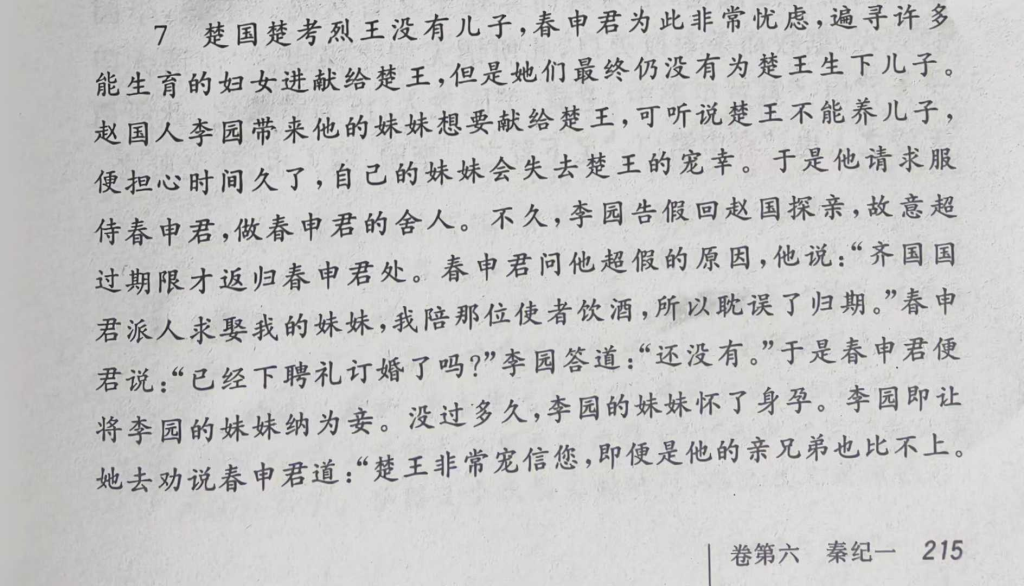 7 楚国楚考烈王没有儿子,春申君为此非常忧虑,遍寻许多
能生育的妇女进献给楚王,但是她们最终仍没有为楚王生下儿子。
赵国人李园带来他的妹妹想要献给楚王,可听说楚王不能养儿子,
便担心时间久了,自己的妹妹会失去楚王的宠幸。于是他请求服
侍春申君,做春申君的舍人。不久,李园告假回赵国探亲,故意超
过期限才返归春申君处。春申君问他超假的原因,他说:“齐国国
君派人求娶我的妹妹,我陪那位使者饮酒,所以耽误了归期。”春申
君说:“已经下聘礼订婚了吗?”李园答道:“还没有。”于是春申君便
将李园的妹妹纳为妾。没过多久,李园的妹妹怀了身孕。李园即让
她去劝说春申君道:“楚王非常宠信您,即便是他的亲兄弟也比不上。
卷第六 秦纪一 215